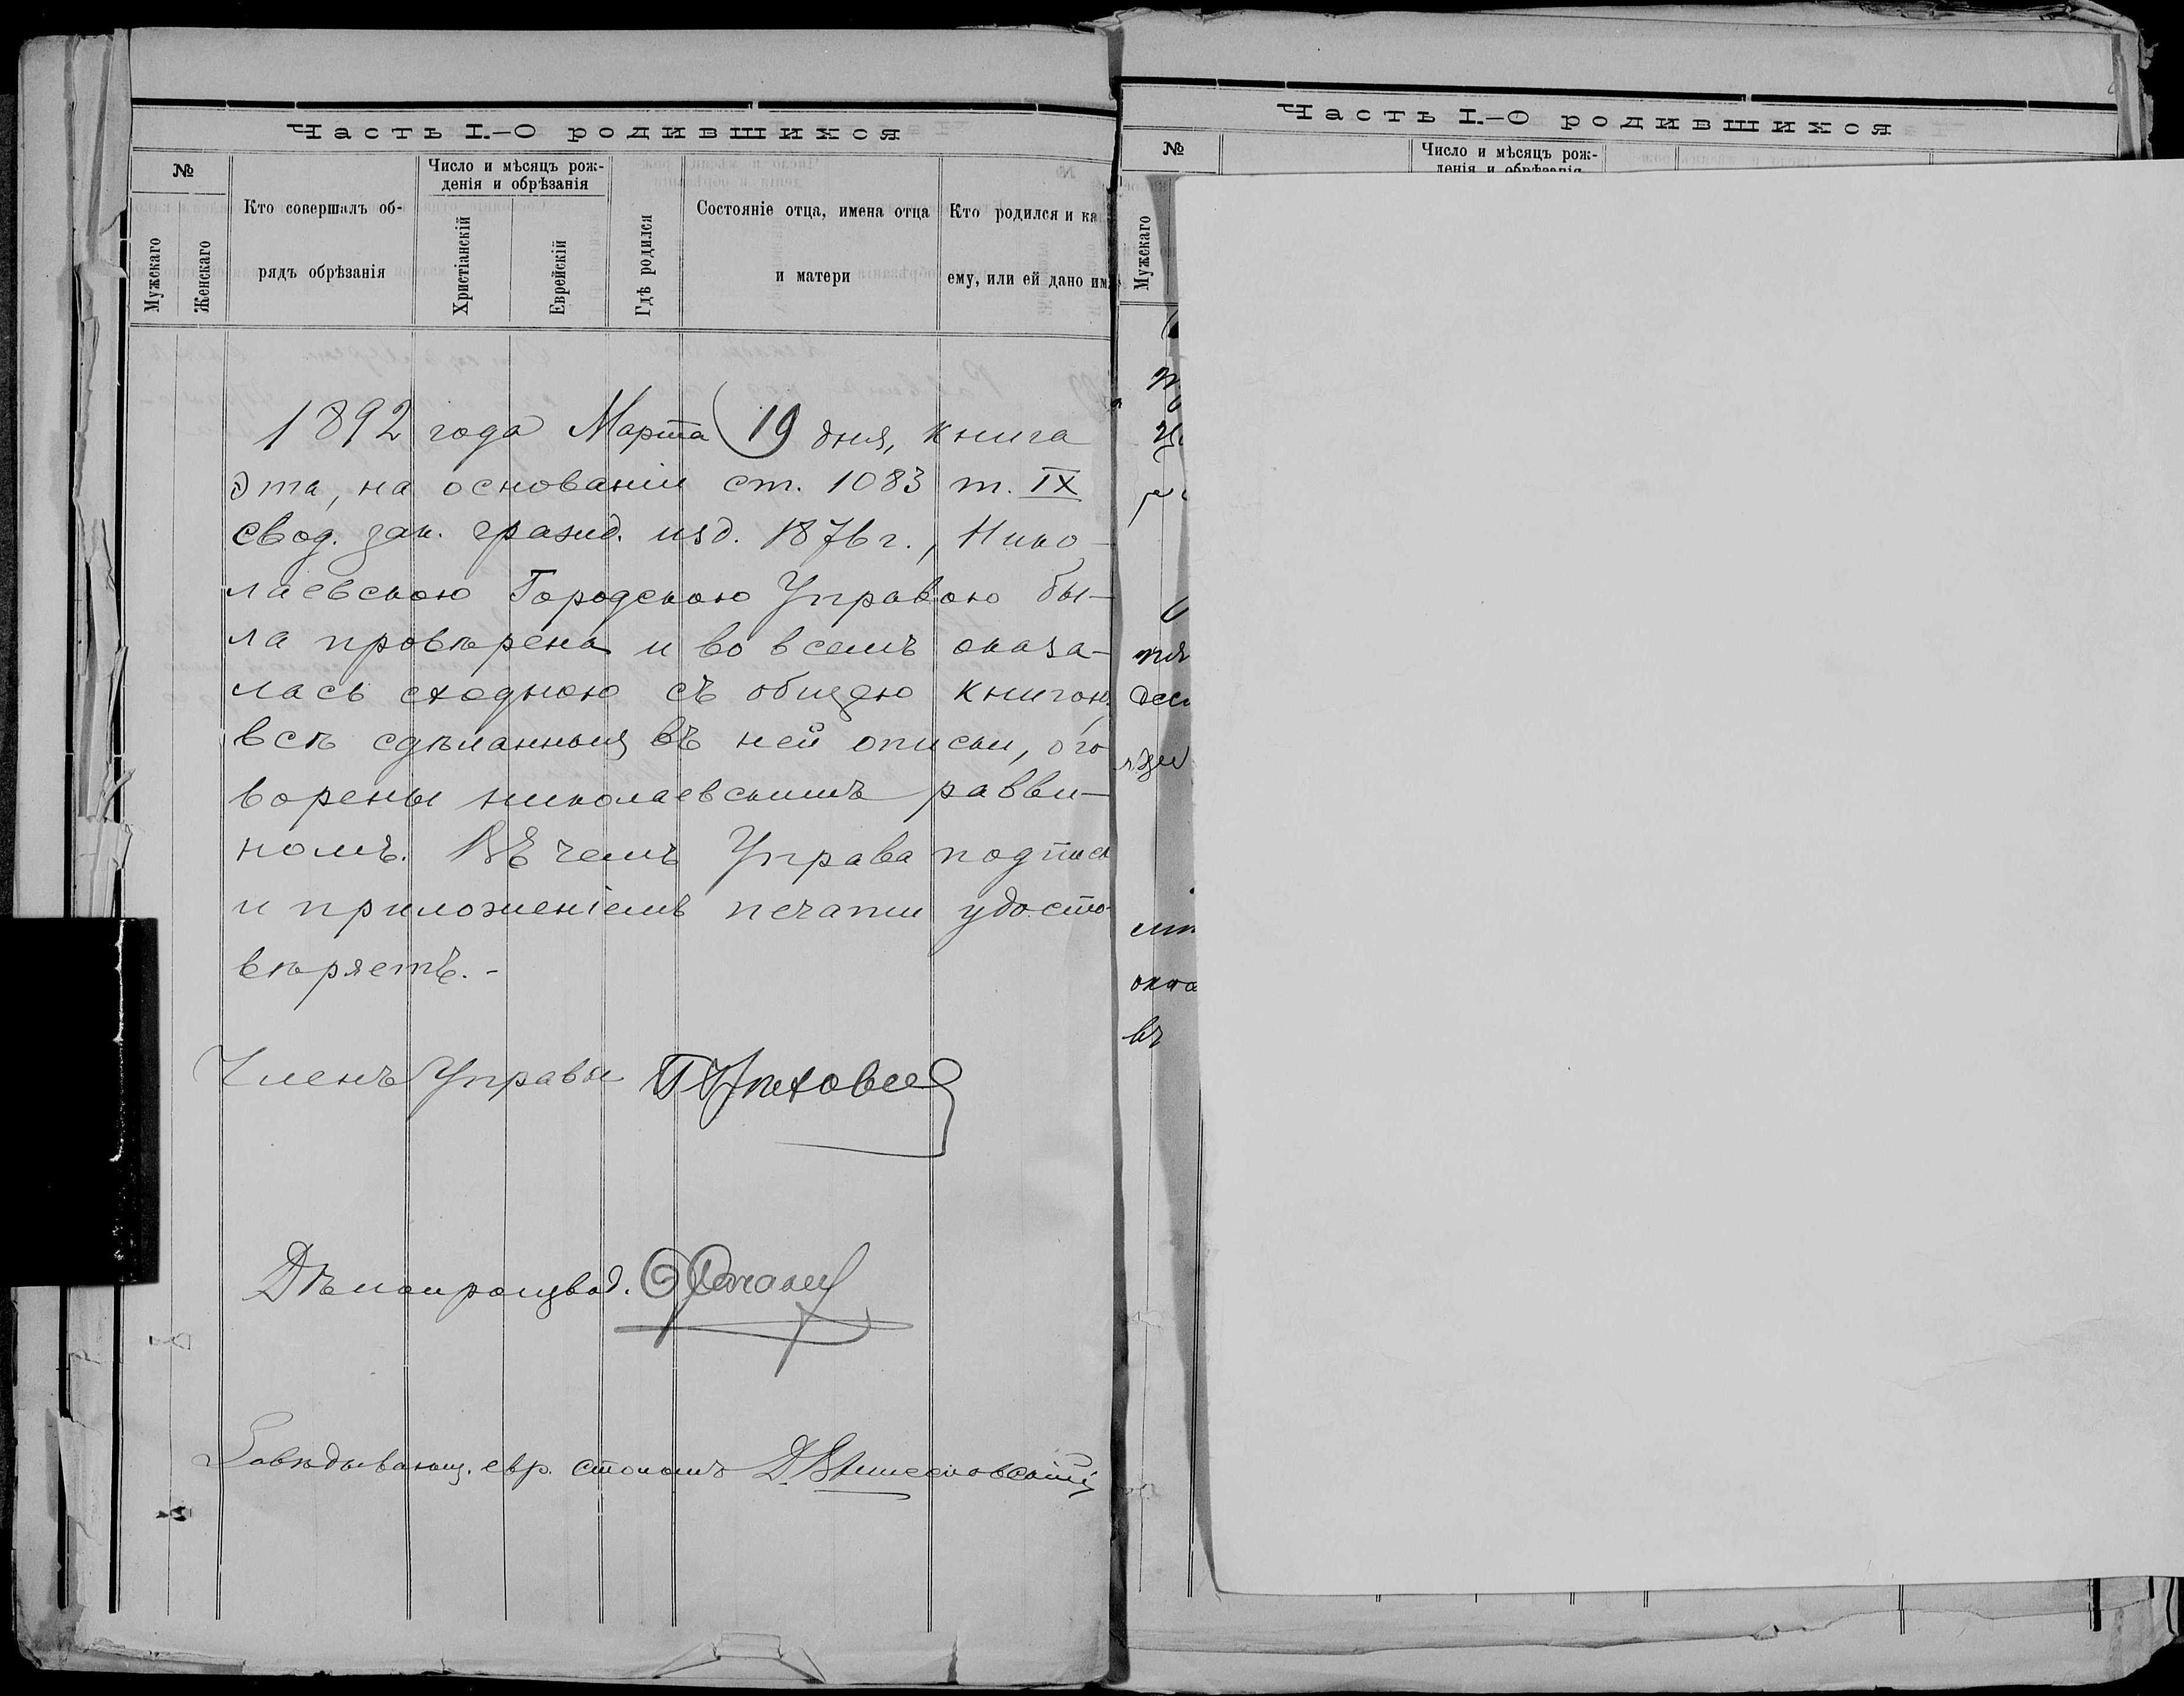 Часть I.—О родившихся
№
Мужскаго
Женскаго
Кто совершалъ об-
рядъ обрѣзанія
Число и мѣсяцъ рож-
денія и обрѣзанія
Христіанскій
Еврейскій
Гдѣ родился
Состояніе отца, имена отца
и матери
Кто родился и ка
ему, или ей дано им
1892 года Марта 19 дня, книга
эта, на основаніи ст. 1083 т. IX
свод. зак. гражд. изд. 1876 г., Нико-
лаевскою Городскою Управою бы-
ла провѣрена и во всемъ оказа-
лась сходною съ общею книгою,
всѣ сдѣланныя въ ней описки, ого
ворены николаевскимъ равви-
номъ. Въ чемъ Управа подпись
и приложеніемъ печати удосто-
вѣряетъ.-
Членъ Управы
Дѣлопроизвод.
Завѣдывающ. евр. столомъ
Часть I.—О родившихся
№
Мужскаго
Число и мѣсяцъ рож-
денія и обрѣзанія
въ